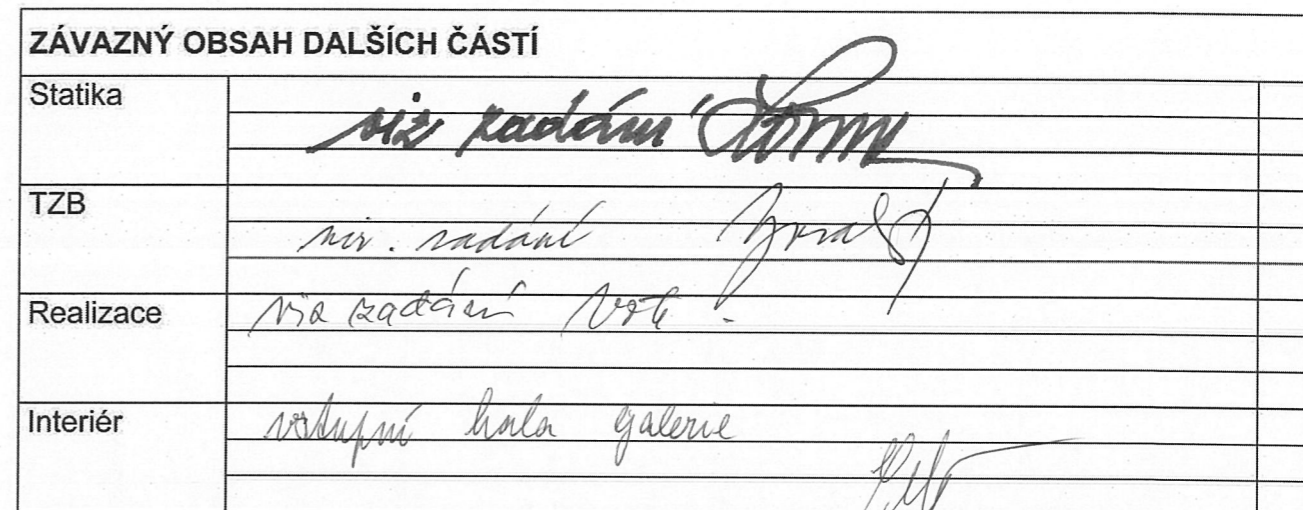 ZÁVAZNÝ OBSAH DALŠÍCH ČÁSTÍ
Statika
viz zadání
TZB
viz. zadání
Realizace
viz zadání
Interiér
vstupní hala galerie